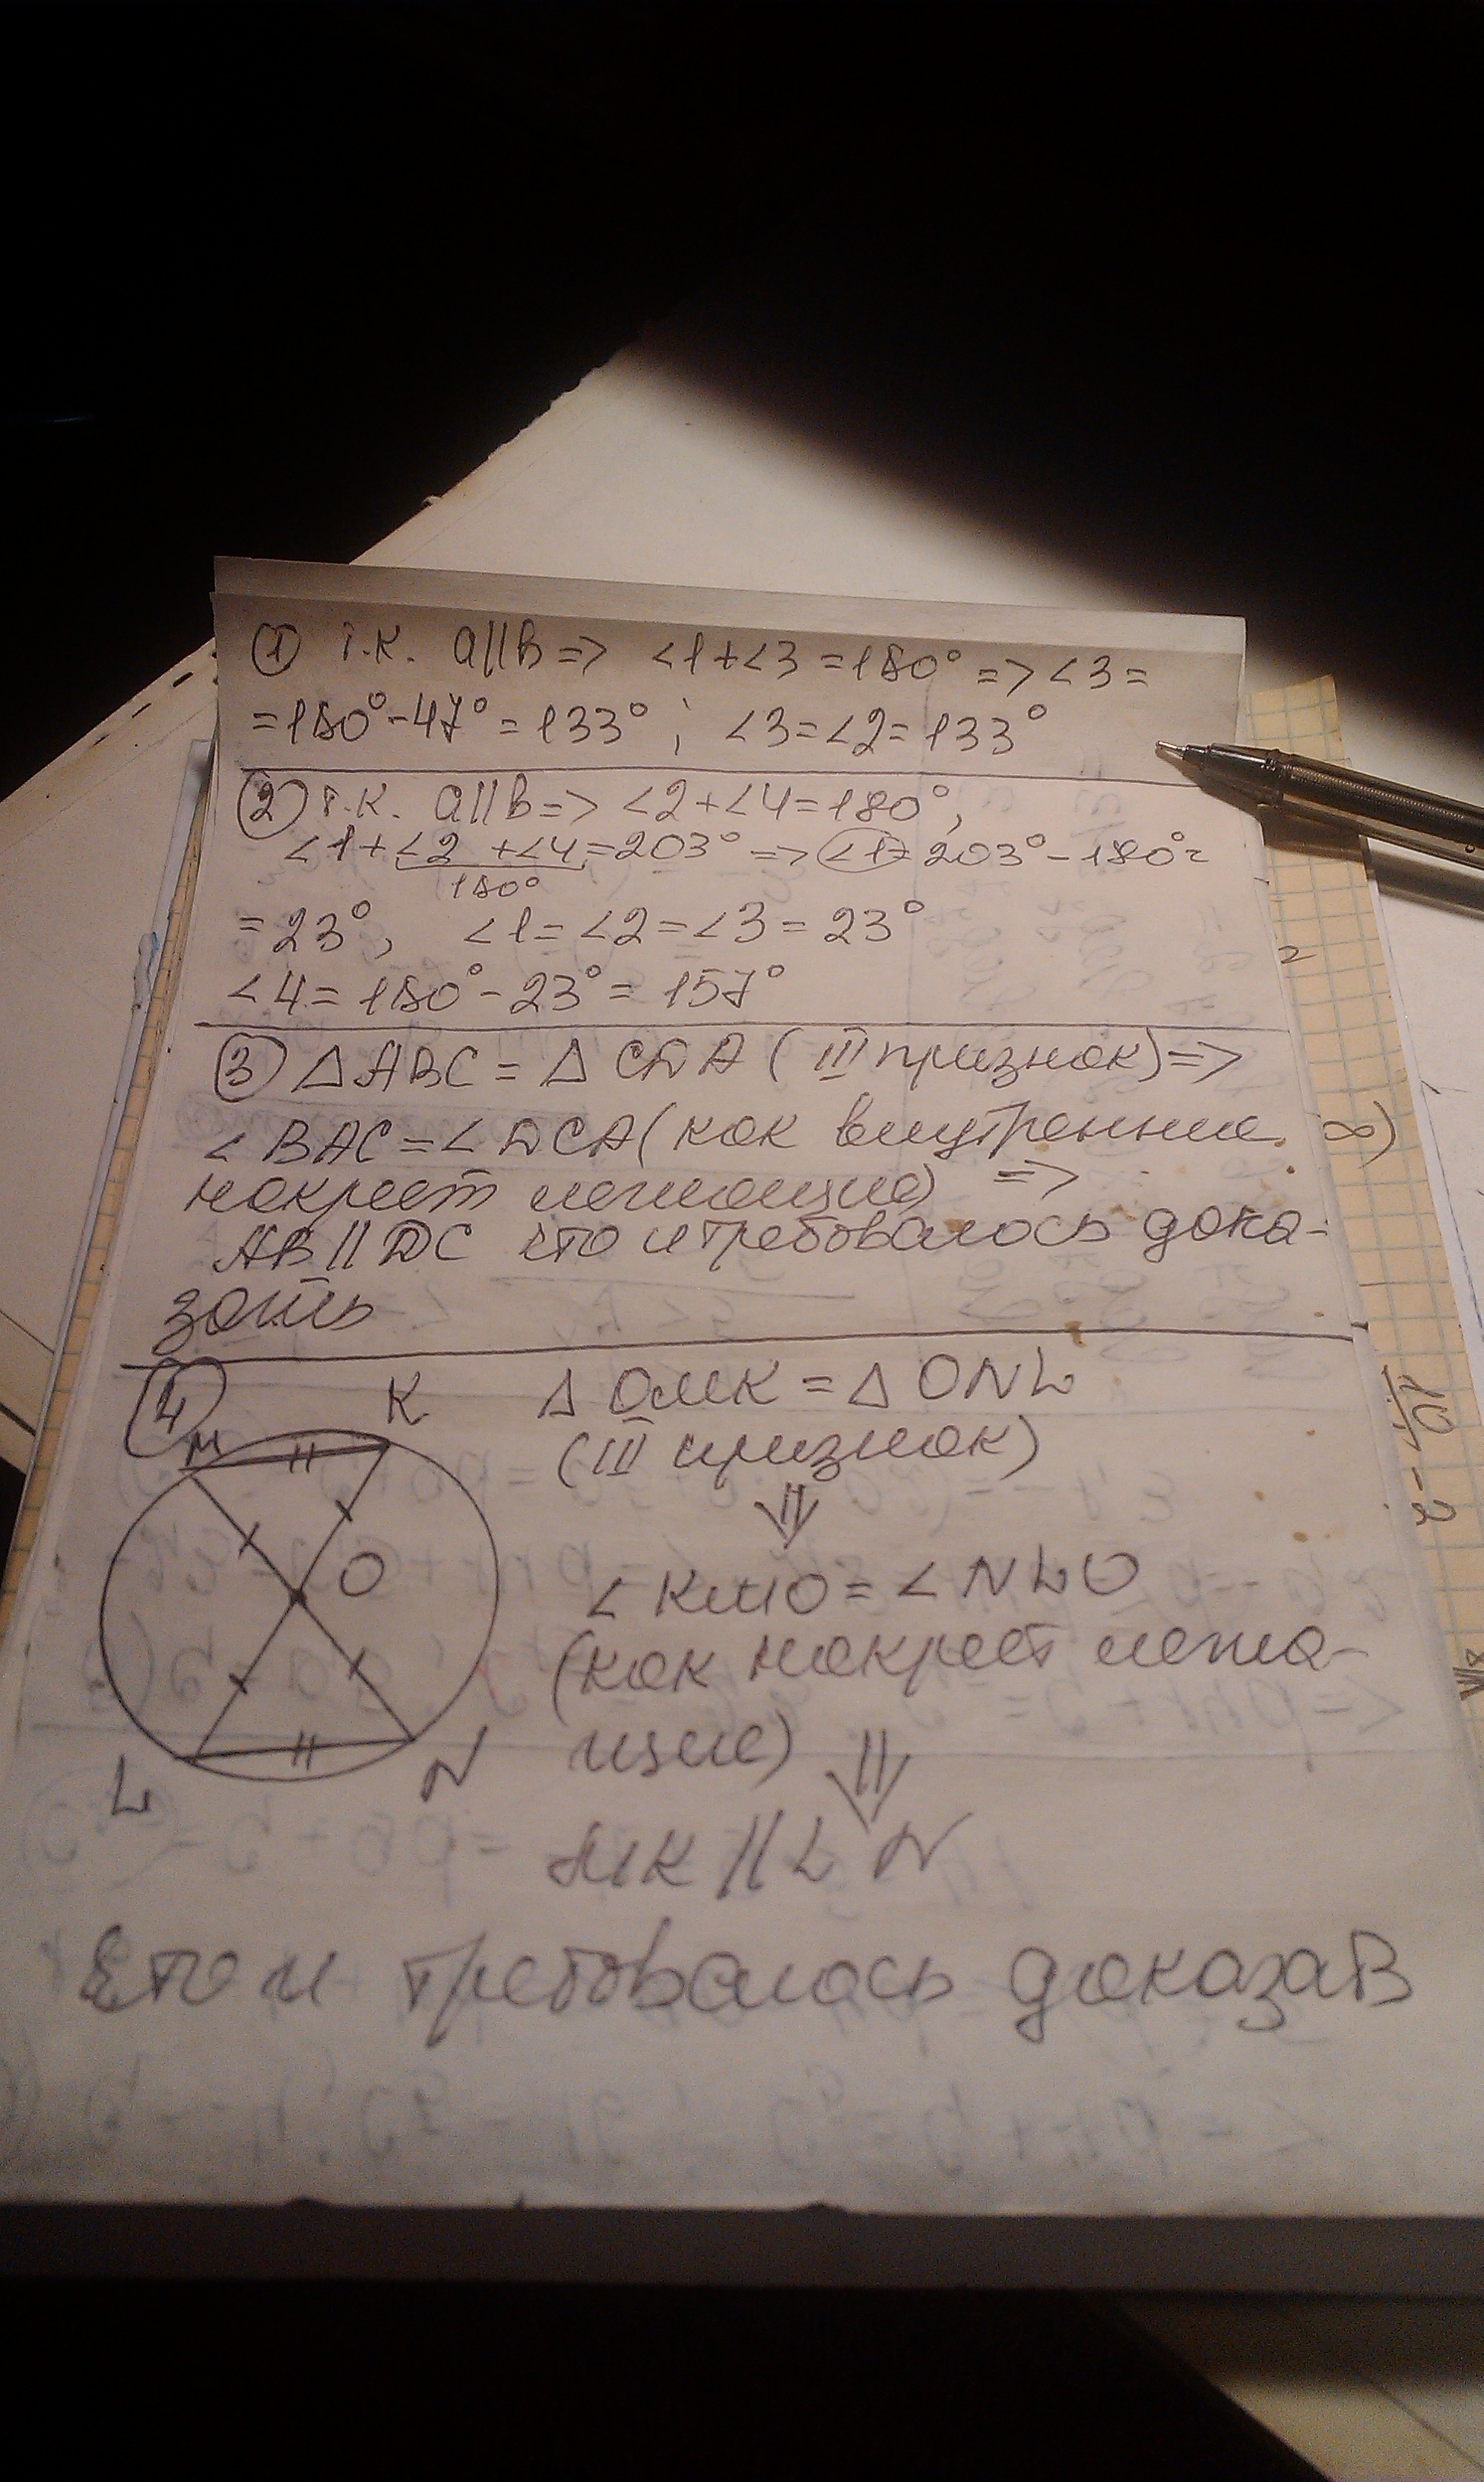 ① т.к. a||b => ∠1+∠3=180° => ∠3=
=180°-47°=133° ; ∠3=∠2=133°
② т.к. a||b => ∠2+∠4=180°,
∠1+∠2+∠4=203° => ∠1=203°-180°=
180°
=23°, ∠1=∠2=∠3=23°
∠4=180°-23°=157°
③ △ABC=△CDA (III признак)=>
∠BAC=∠DCA (как внутренние
накрест лежащие) =>
AB||DC что и требовалось дока-
зать
④
M K
O
L N
△OMK=△ONL
(III признак)
⇓
∠KMO=∠NLO
(как накрест лежа-
щие) ⇓
MK||LN
Что и требовалось доказав